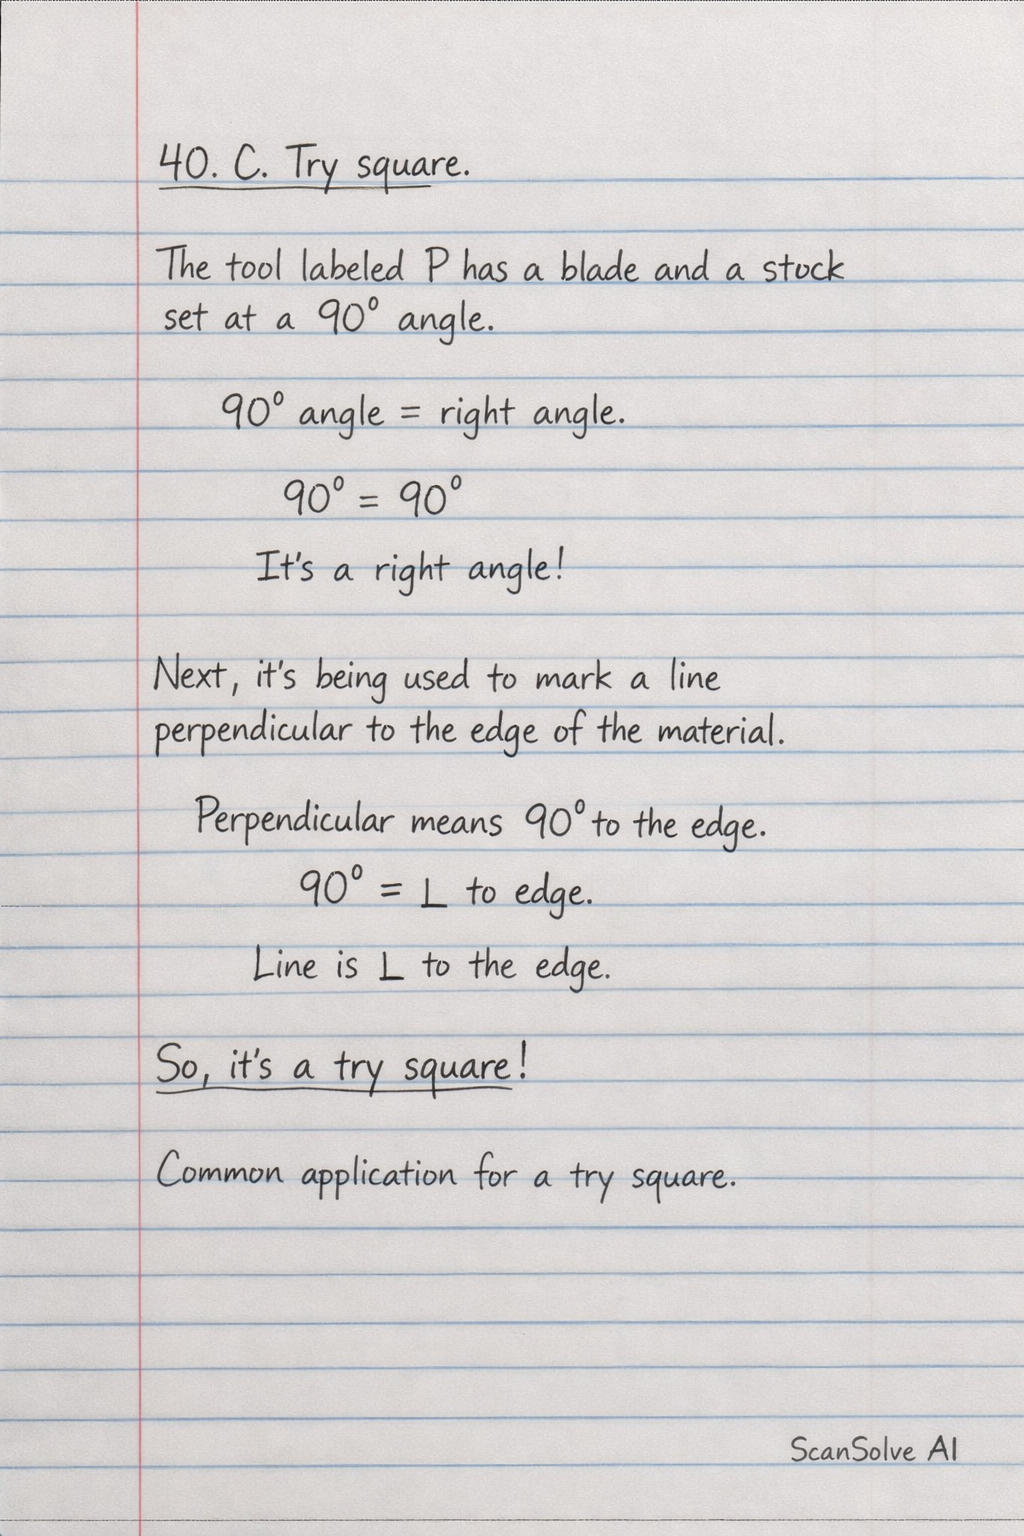 40. C. Try square.
The tool labeled P has a blade and a stock
set at a 90° angle.
90° angle = right angle.
90° = 90°
It's a right angle!
Next, it's being used to mark a line
perpendicular to the edge of the material.
Perpendicular means 90° to the edge.
90° = ⊥ to edge.
Line is ⊥ to the edge.
So, it's a try square!
Common application for a try square.
ScanSolve AI